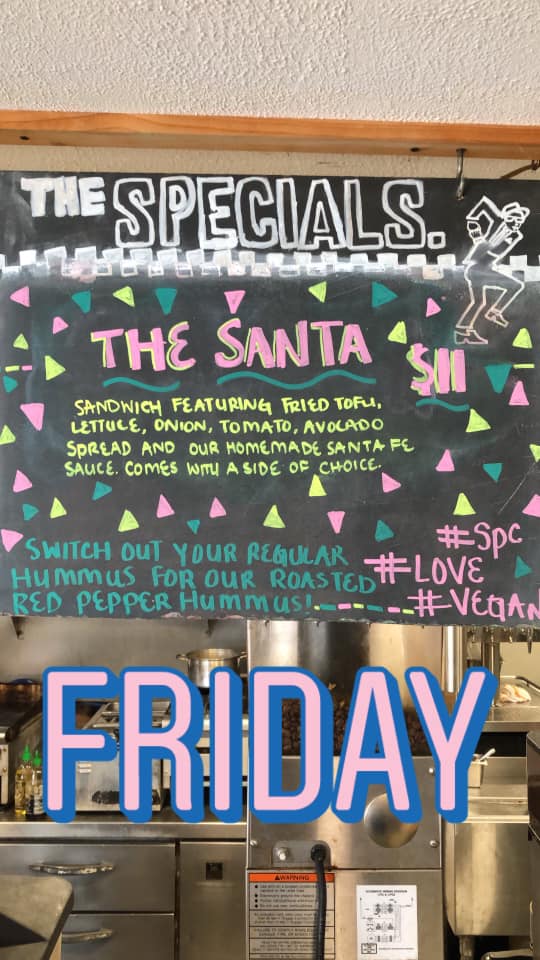 THE SPECIALS.
THE SANTA
$11
SANDWICH FEATURING FRIED TOFU,
LETTUCE, ONION, TOMATO, AVOCADO
SPREAD AND OUR HOMEMADE SANTA FE
SAUCE. COMES WITH A SIDE OF CHOICE.
SWITCH OUT YOUR REGULAR
HUMMUS FOR OUR ROASTED
RED PEPPER HUMMUS!
#SPC
#LOVE
#VEGAN
FRIDAY
WARNING